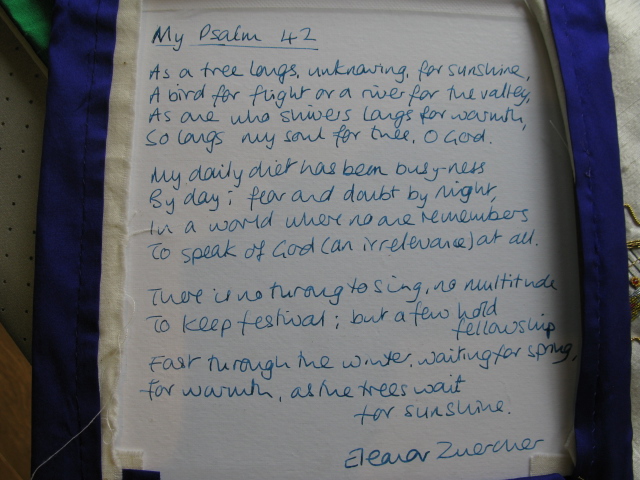 My Psalm 42
As a tree longs, unknowing, for sunshine,
A bird for flight or a river for the valley,
As one who shivers longs for warmth,
So longs my soul for thee, O God.
My daily diet has been busy-ness
By day; fear and doubt by night,
In a world where no one remembers
To speak of God (an irrelevance) at all.
There is no throng to sing, no multitude
To keep festival; but a few hold
fellowship
Fast through the winter, waiting for spring,
For warmth, as the trees wait
for sunshine.
Eleanor Zuercher